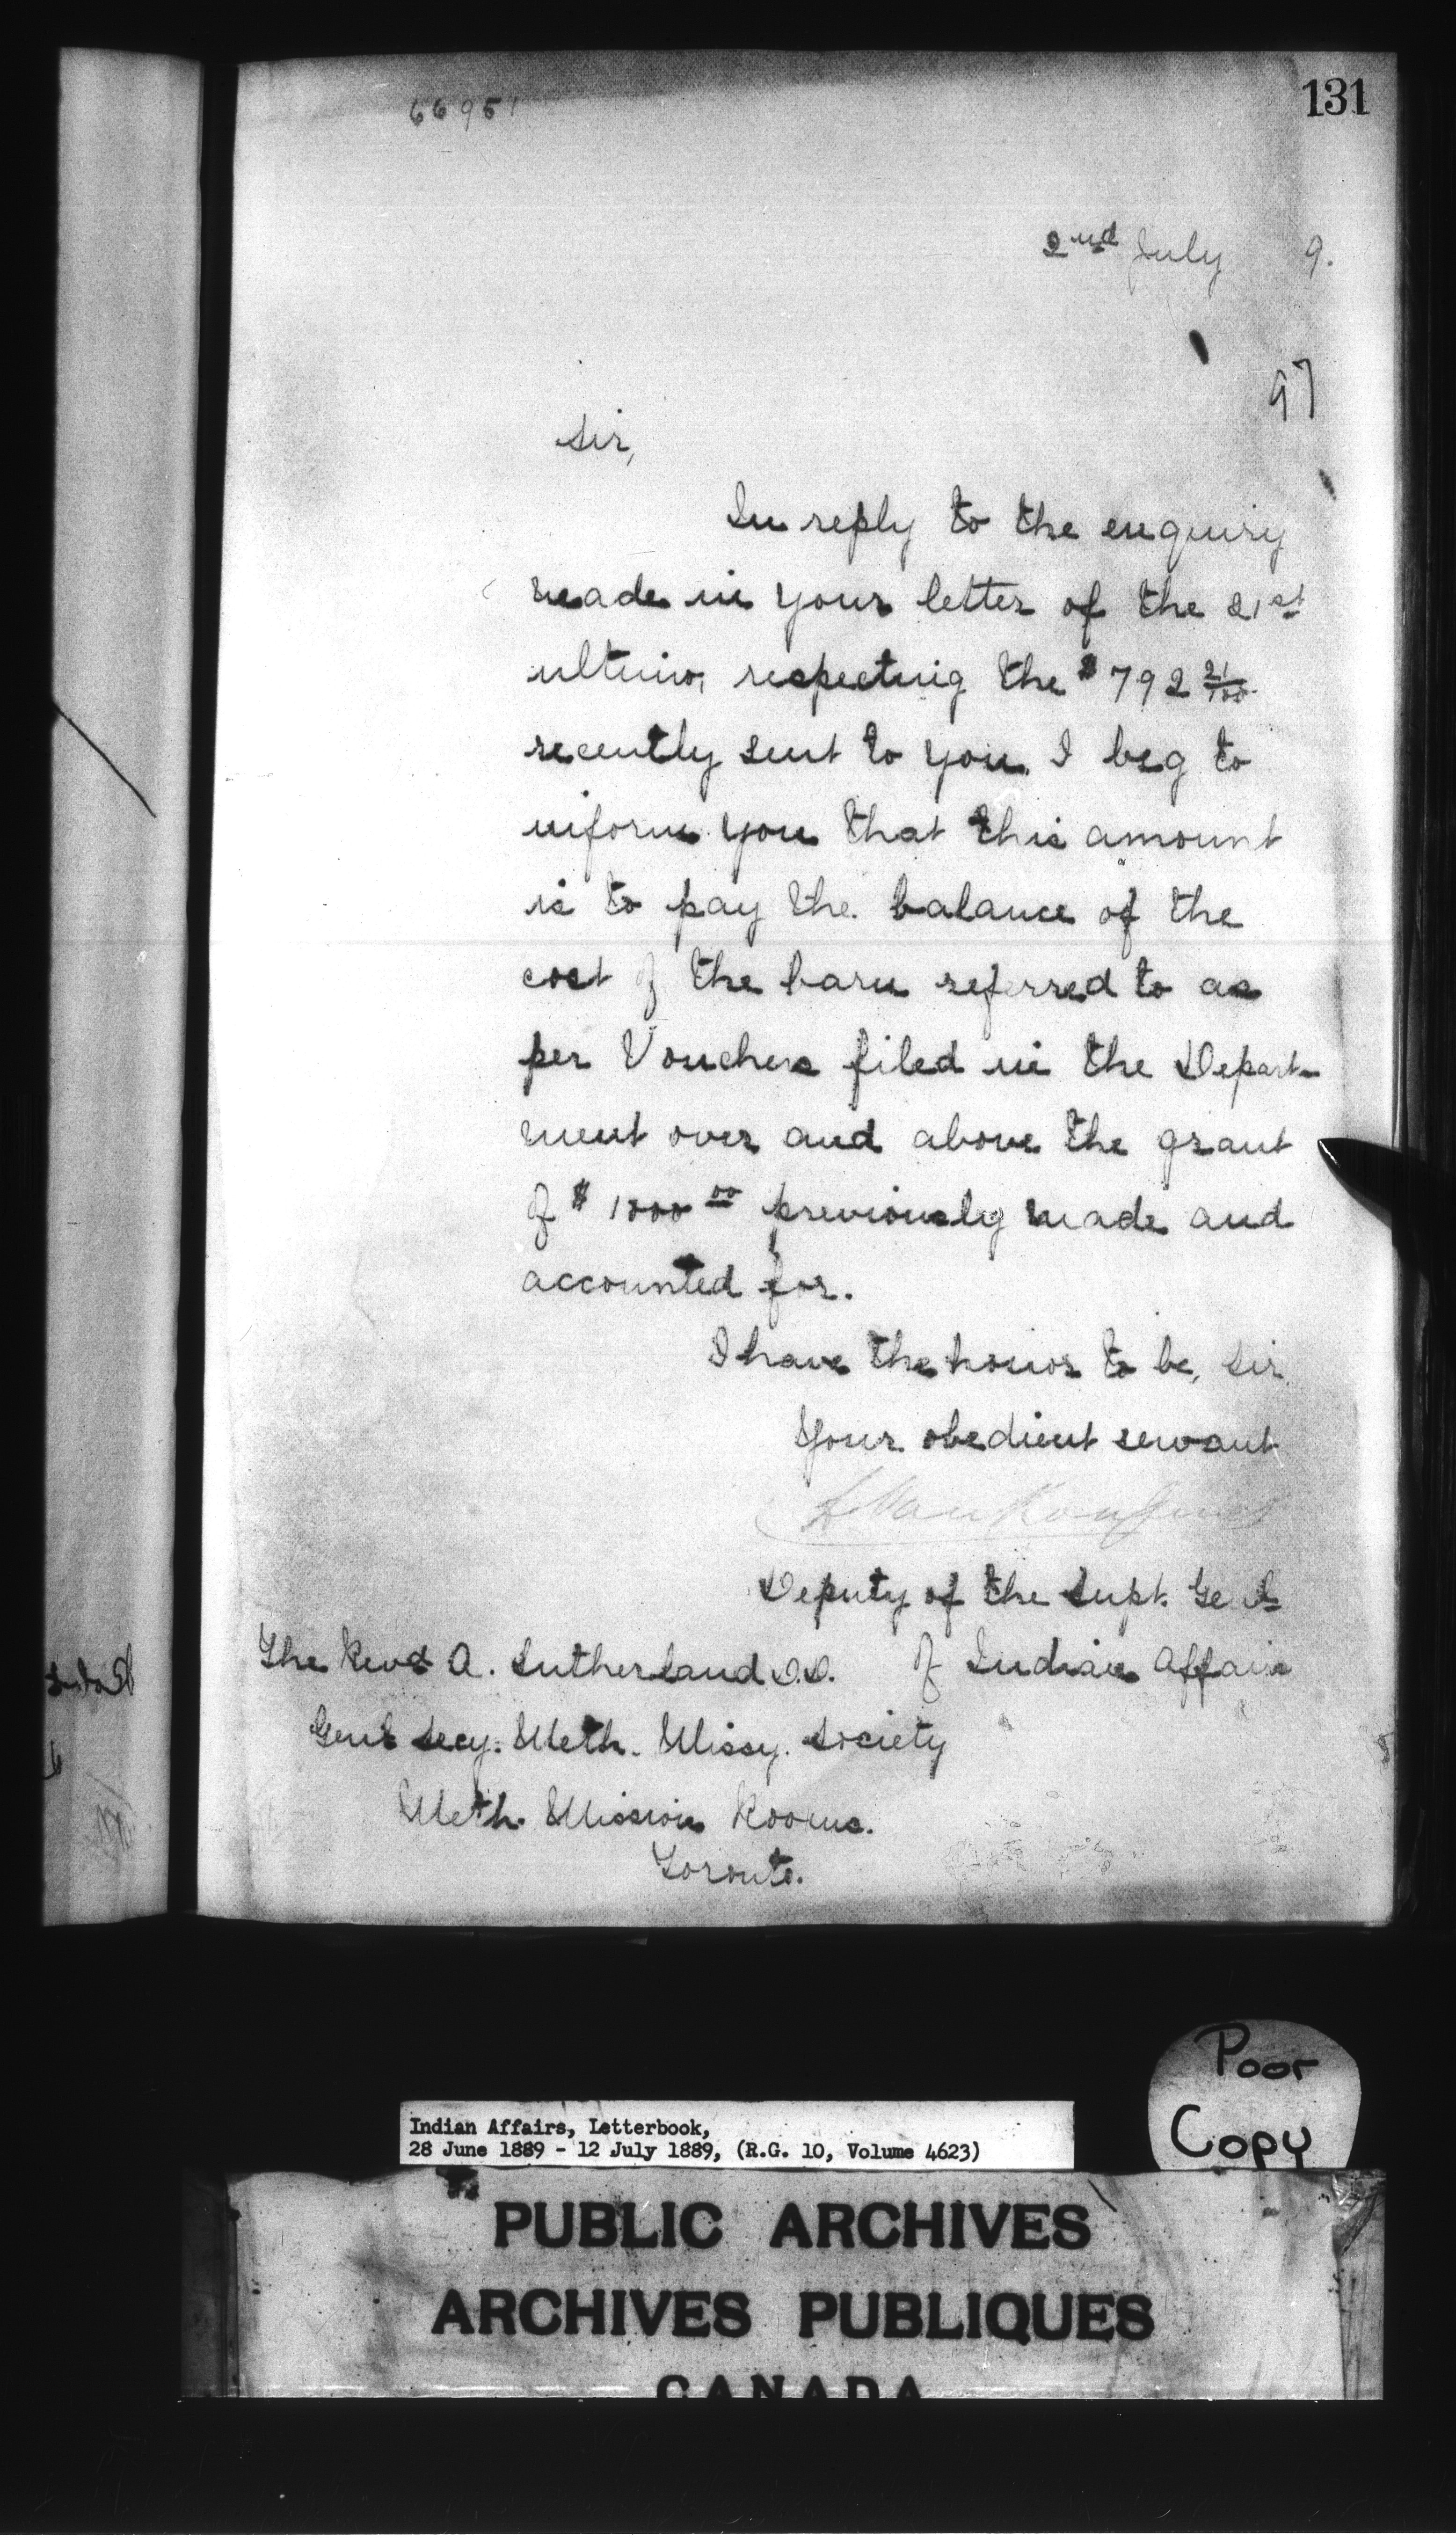 131
66951
2nd July 9.
97
Sir,
In reply to the enquiry
made in your letter of the 21st
ultimo, respecting the $792 21/100
recently sent to you, I beg to
inform you that this amount
is to pay the balance of the
cost of the barn referred to as
per Vouchers filed in the Depart-
ment over and above the grant
of $1000 00 previously made and
accounted for.
I have the honor to be, Sir
Your obedient servant
L. VanKoughnet
Deputy of the Supt. Genl
of Indian Affairs
The Revd A. Sutherland D.D.
Genl Secy. Meth. Missy. Society
Meth. Mission Rooms.
Toronto.
Poor
Copy
Indian Affairs, Letterbook,
28 June 1889 - 12 July 1889, (R.G. 10, Volume 4623)
PUBLIC ARCHIVES
ARCHIVES PUBLIQUES
CANADA